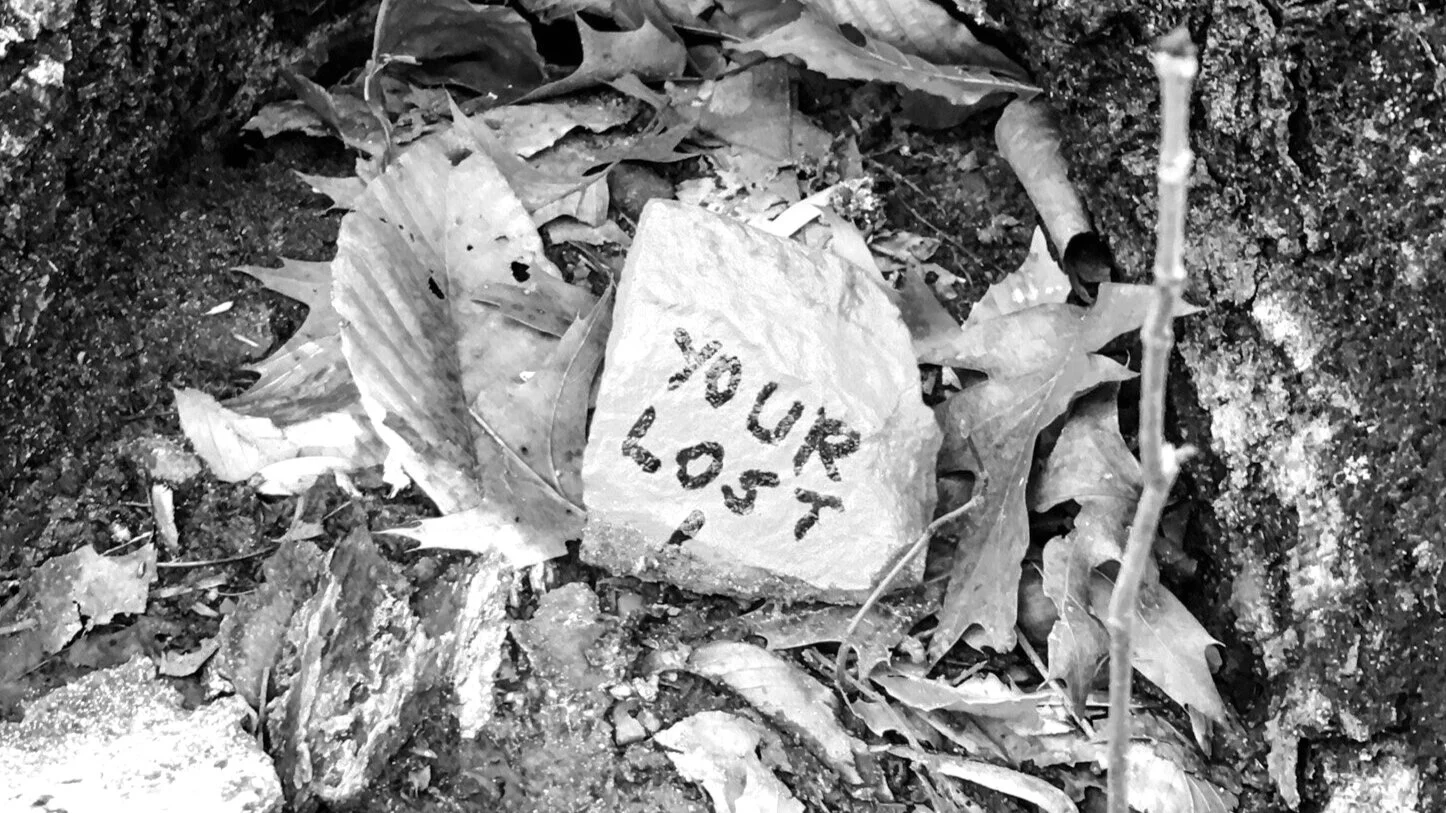 YOUR
LOST